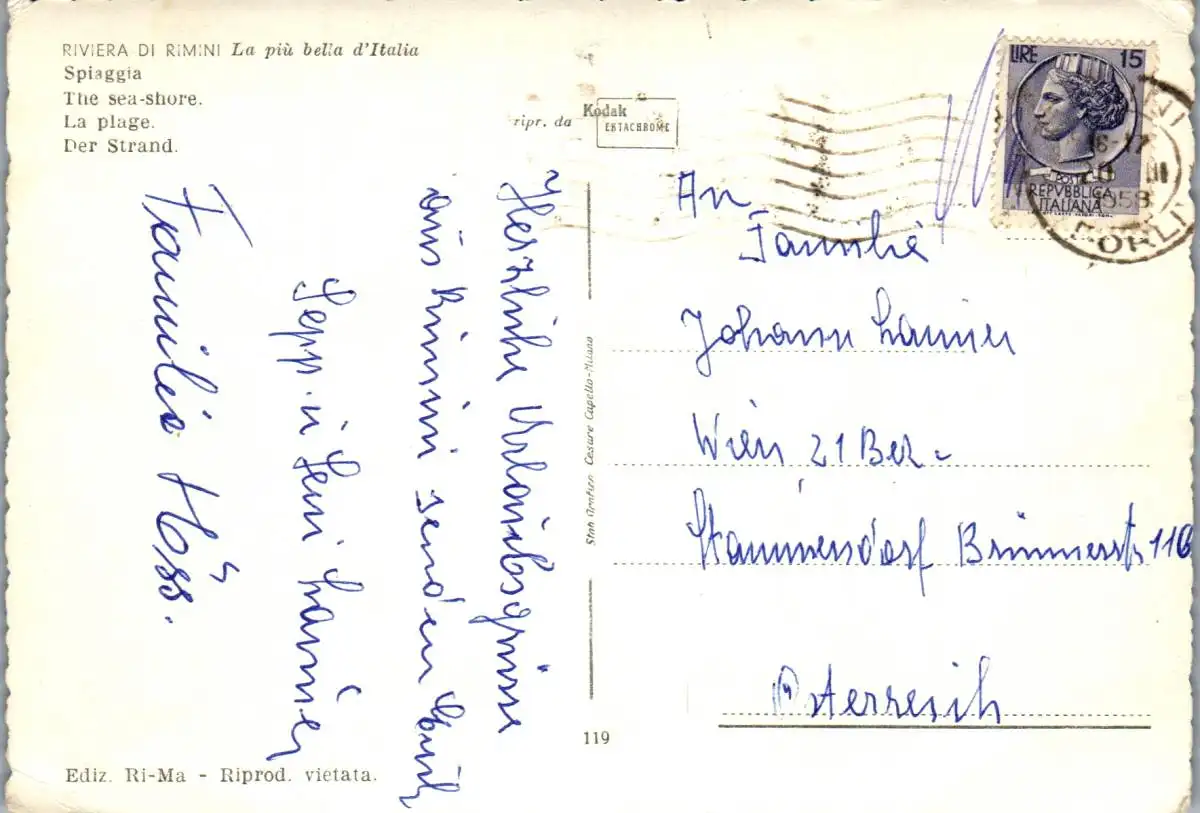 RIVIERA DI RIMINI La più bella d'Italia
Spiaggia
The sea-shore.
La plage.
Der Strand.
ripr. da Kodak
EKTACHROME
LIRE 15
POSTE
REPVBBLICA
ITALIANA
16-17
1958
FORLI
Herzliche Urlaubsgrüsse
aus Rimini senden Euch
Sepp u Leni
Familie Höss.
An
Familie
Johann
Wien 21 Bez.
Stammersdorf Brünnerstr
Österreich
Cesare Capello-Milano
119
Ediz. Ri-Ma - Riprod. vietata.